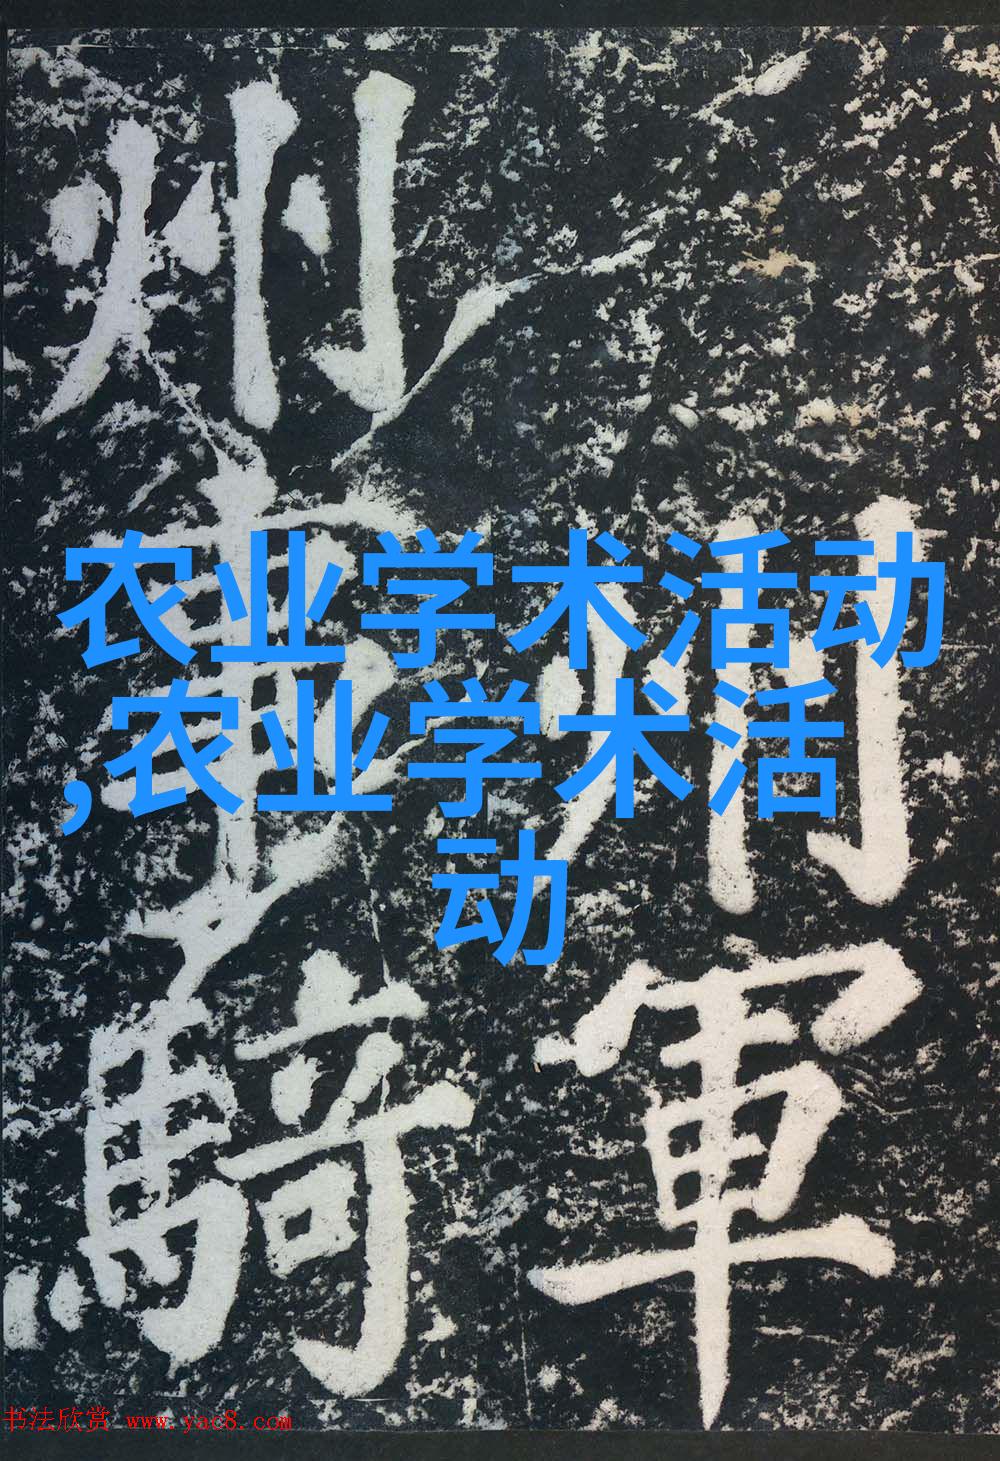 农业学术活动
,农业学术活
动
州軍
州事騎
书法欣赏 www.yac8.com